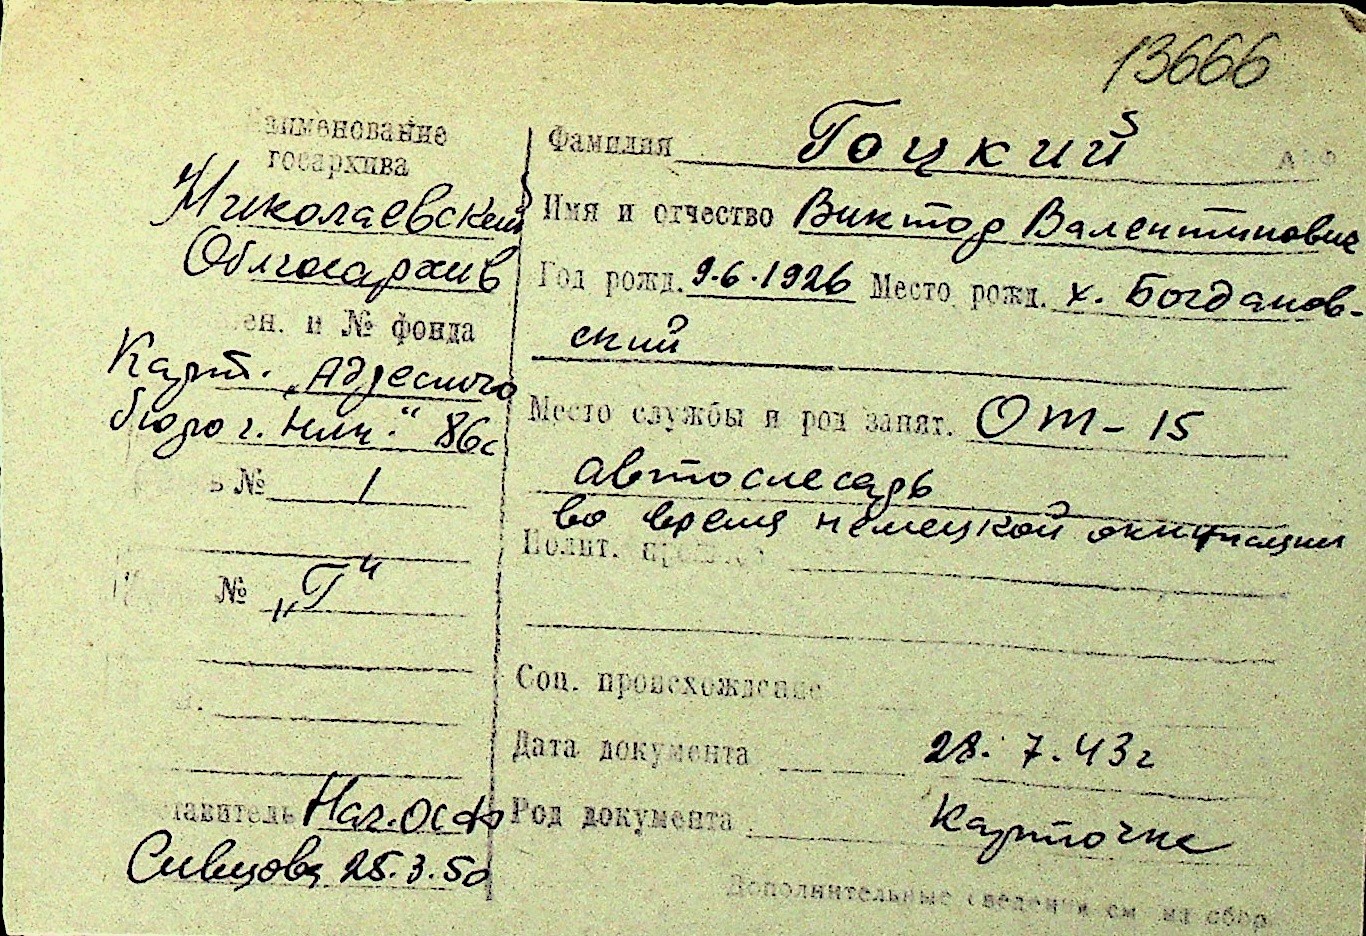 13666
Наименование
госархива
Николаевский
Облгосархив
и № фонда
Карт. „Адресного
бюро г. Ник." 86с
№ 1
№ „Г"
Составитель Нач. ОСФ
Сивцова 25.3.50
Фамилия Гоцкий
Имя и отчество Виктор Валентинович
Год рожд. 9.6.1926 Место рожд. х. Богданов-
ский
Место службы и род занят. ОТ-15
автослесарь
во время немецкой оккупации
Полит. прошлое
Соц. происхождение
Дата документа 28.7.43г
Род документа Карточка
Дополнительные сведения см на обор